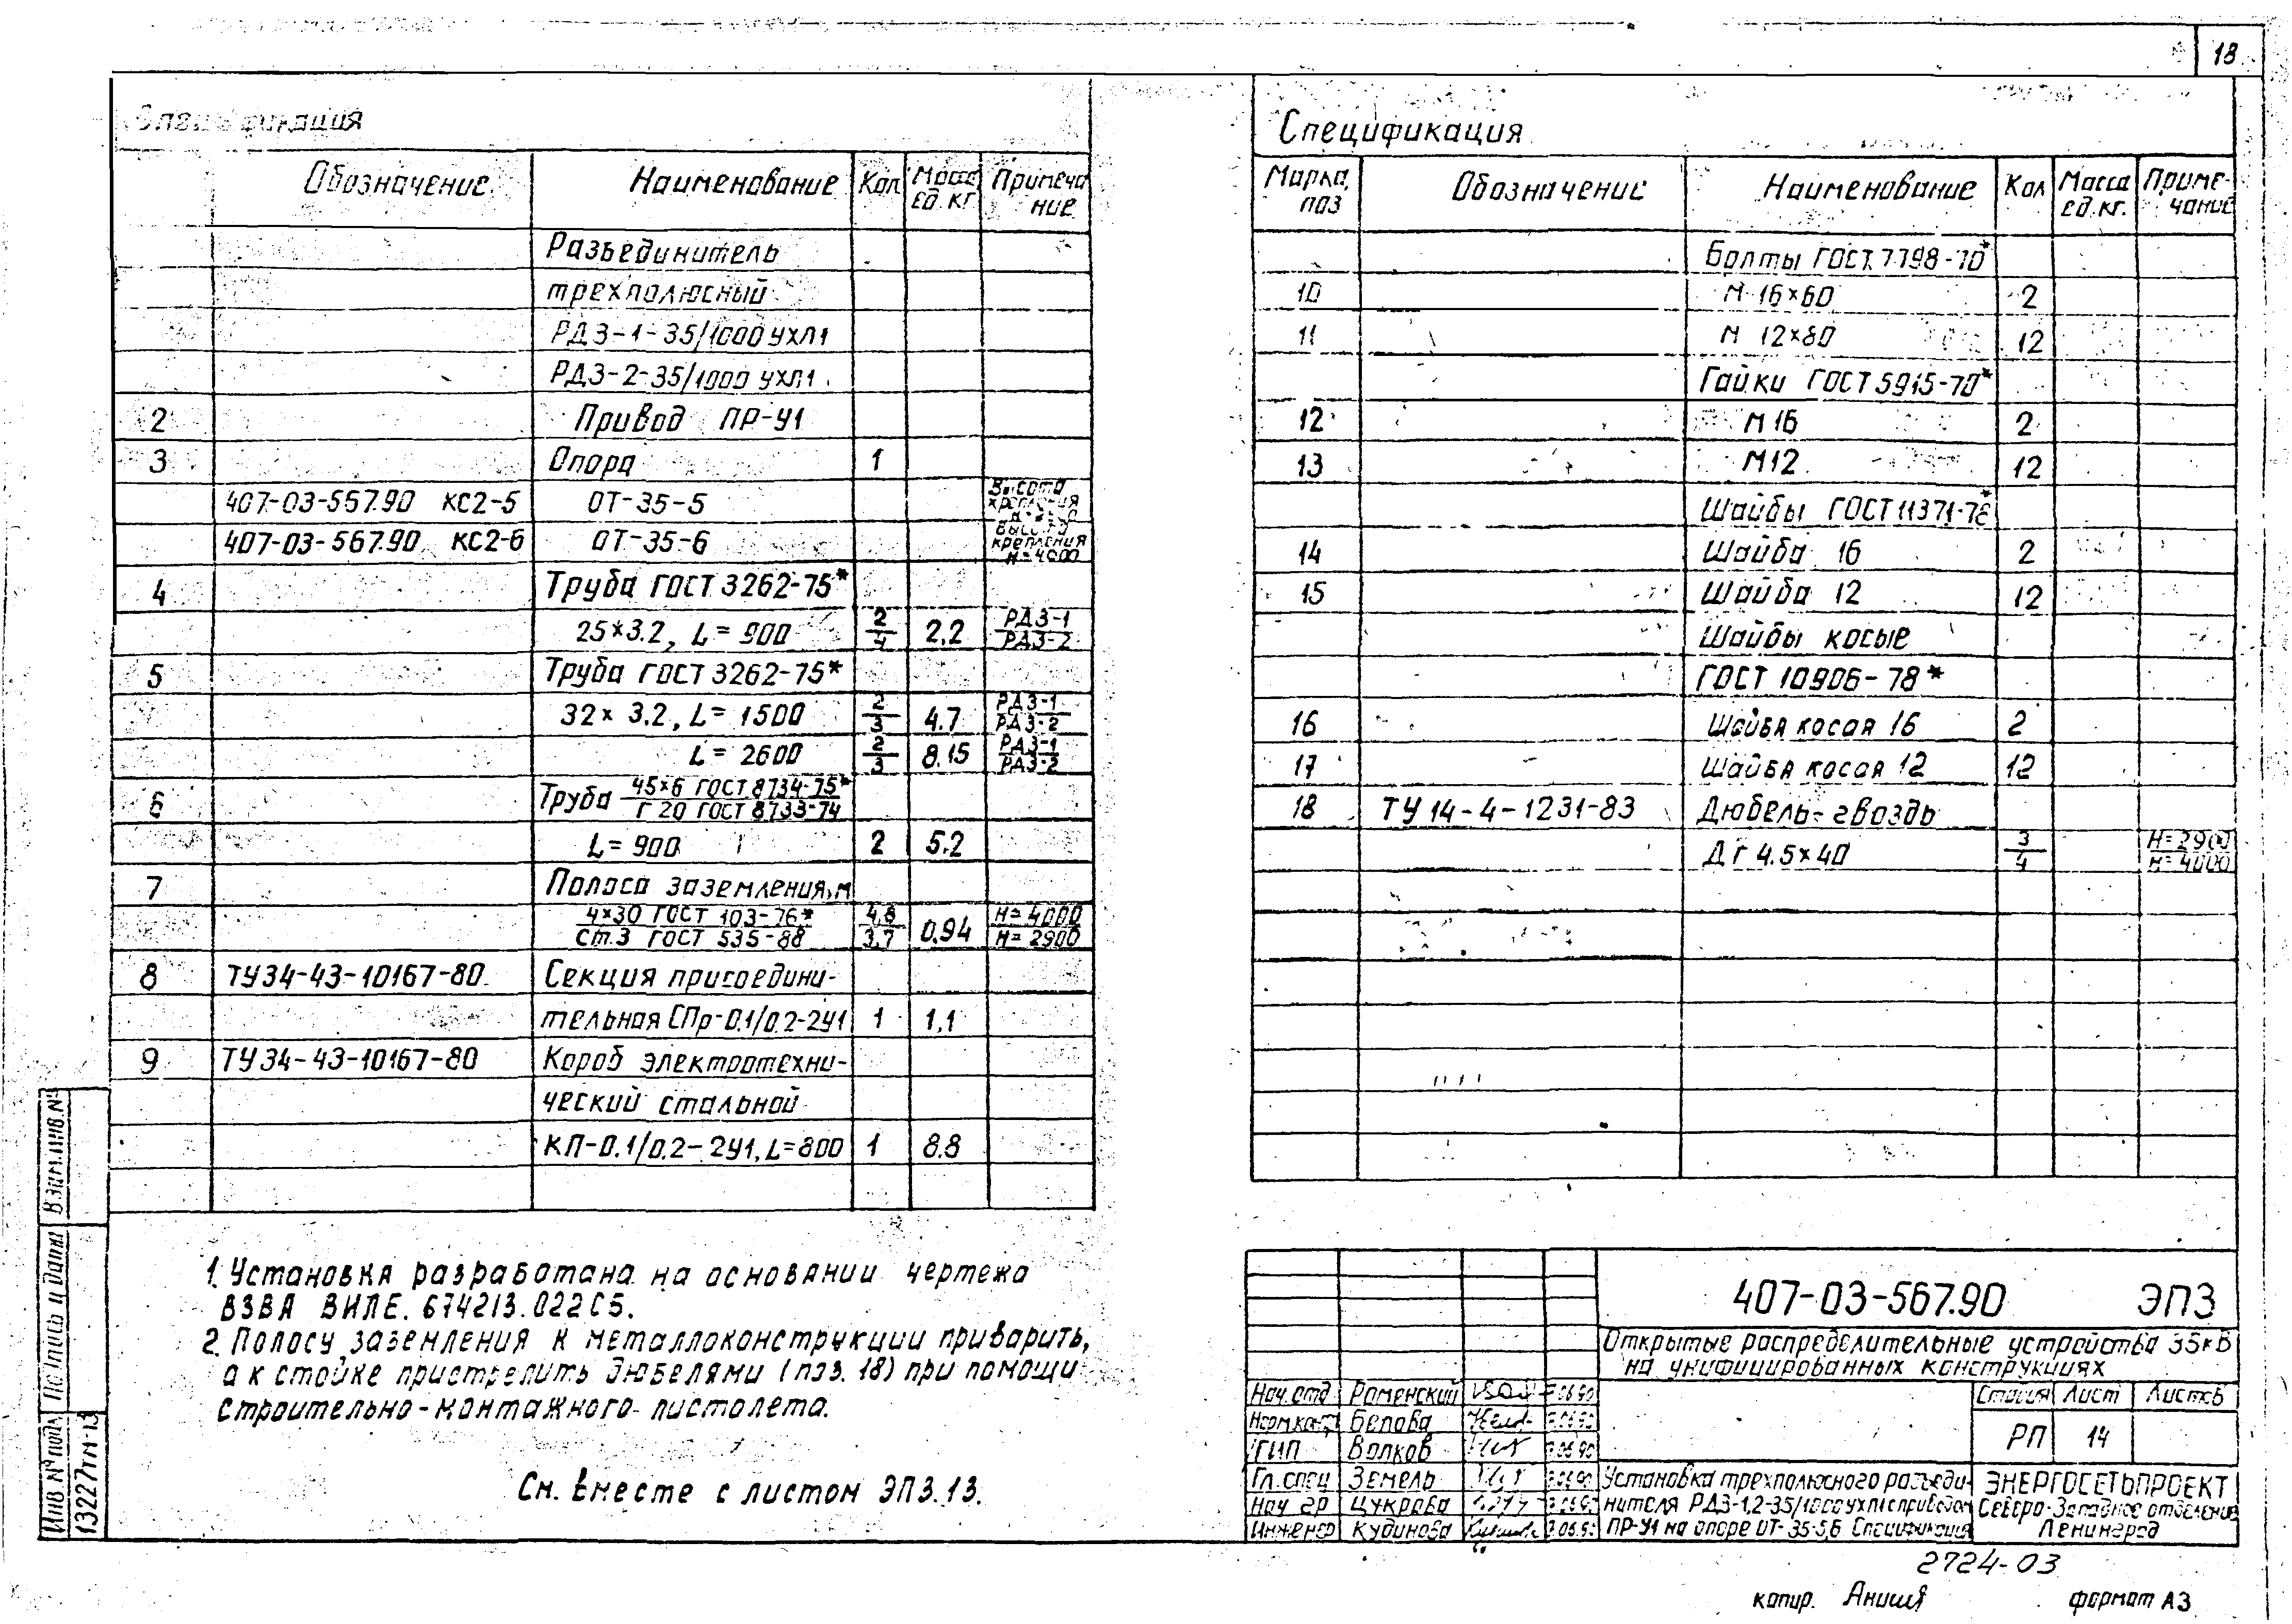 18
Спецификация
Обозначение Наименование Кол Масса ед. кг Примечание
Разъединитель
трехполюсный
РДЗ-1-35/1000 УХЛ1
РДЗ-2-35/1000 УХЛ1
2 Привод ПР-У1
3 Опора 1
407-03-567.90 КС2-5 ОТ-35-5 Высота крепления
407-03-567.90 КС2-6 ОТ-35-6 Высота крепления Н=4000
4 Труба ГОСТ 3262-75*
25×3.2, L=900 2/4 2,2 РДЗ-1/РДЗ-2
5 Труба ГОСТ 3262-75*
32×3.2, L=1500 2/3 4.7 РДЗ-1/РДЗ-2
L=2600 2/3 8.15 РДЗ-1/РДЗ-2
6 Труба 45×6 ГОСТ 8734-75*/Г 20 ГОСТ 8733-74
L=900 2 5.2
7 Полоса заземления, м
4×30 ГОСТ 103-76*/Ст.3 ГОСТ 535-88 4,8/3,7 0.94 Н=4000/Н=2900
8 ТУ34-43-10167-80 Секция присоедини-
тельная СПр-0.1/0.2-2У1 1 1,1
9 ТУ34-43-10167-80 Короб электротехни-
ческий стальной
КП-0.1/0.2-2У1, L=800 1 8.8
1. Установка разработана на основании чертежа
ВЗВА ВИЛЕ. 674213.022СБ.
2. Полосу заземления к металлоконструкции приварить,
а к стойке пристрелить дюбелями (поз. 18) при помощи
строительно-монтажного пистолета.
См. вместе с листом ЭП3.13.
Спецификация
Марка, поз Обозначение Наименование Кол Масса ед. кг. Приме-чание
Болты ГОСТ 7798-70*
10 М 16×60 2
11 М 12×80 12
Гайки ГОСТ 5915-70*
12 М16 2
13 М12 12
Шайбы ГОСТ 11371-78*
14 Шайба 16 2
15 Шайба 12 12
Шайбы косые
ГОСТ 10906-78*
16 Шайба косая 16 2
17 Шайба косая 12 12
18 ТУ 14-4-1231-83 Дюбель-гвоздь
ДГ 4.5×40 3/4 Н=2900/Н=4000
407-03-567.90 ЭП3
Открытые распределительные устройства 35кВ
на унифицированных конструкциях
Нач. отд Роменский
Норм.контр Белова
ГИП Волков
Гл. спец Земель
Нач. гр Цукрова
Инженер Кудинова
Стадия Лист Листов
РП 14
Установка трехполюсного разъеди-
нителя РДЗ-1,2-35/1000 УХЛ1 с приводом
ПР-У1 на опоре ОТ-35-5,6 Спецификация
ЭНЕРГОСЕТЬПРОЕКТ
Северо-Западное отделение
Ленинград
2724-03
копир. формат А3
Взам. инв. №
Подпись и дата
Инв № подл
13227тм-т3